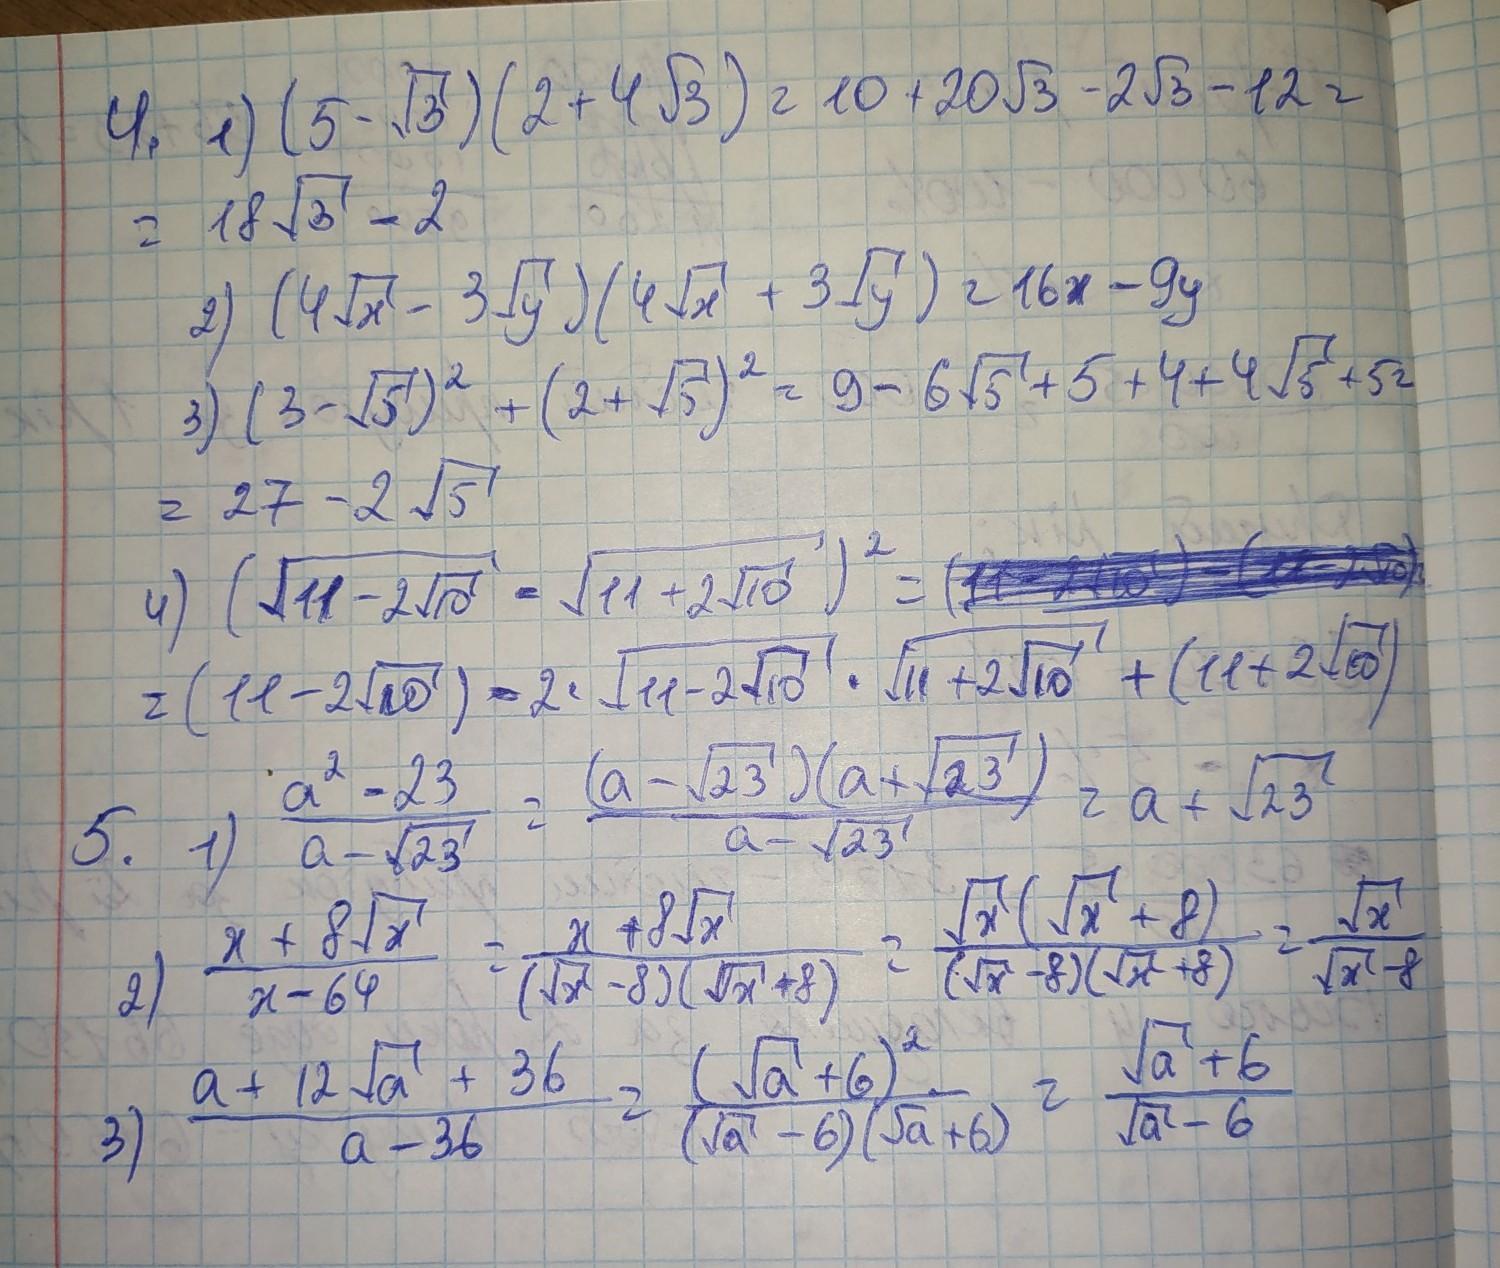 4. 1) (5 - √3)(2 + 4√3) = 10 + 20√3 - 2√3 - 12 =
= 18√3 - 2
2) (4√x - 3√y)(4√x + 3√y) = 16x - 9y
3) (3 - √5)² + (2 + √5)² = 9 - 6√5 + 5 + 4 + 4√5 + 5 =
= 27 - 2√5
4) (√(11 - 2√10) - √(11 + 2√10))² = (
= (11 - 2√10) - 2 · √(11 - 2√10) · √(11 + 2√10) + (11 + 2√10)
5. 1) (a² - 23)/(a - √23) = ((a - √23)(a + √23))/(a - √23) = a + √23
2) (x + 8√x)/(x - 64) = (x + 8√x)/((√x - 8)(√x + 8)) = (√x(√x + 8))/((√x - 8)(√x + 8)) = √x/(√x - 8)
3) (a + 12√a + 36)/(a - 36) = (√a + 6)²/((√a - 6)(√a + 6)) = (√a + 6)/(√a - 6)